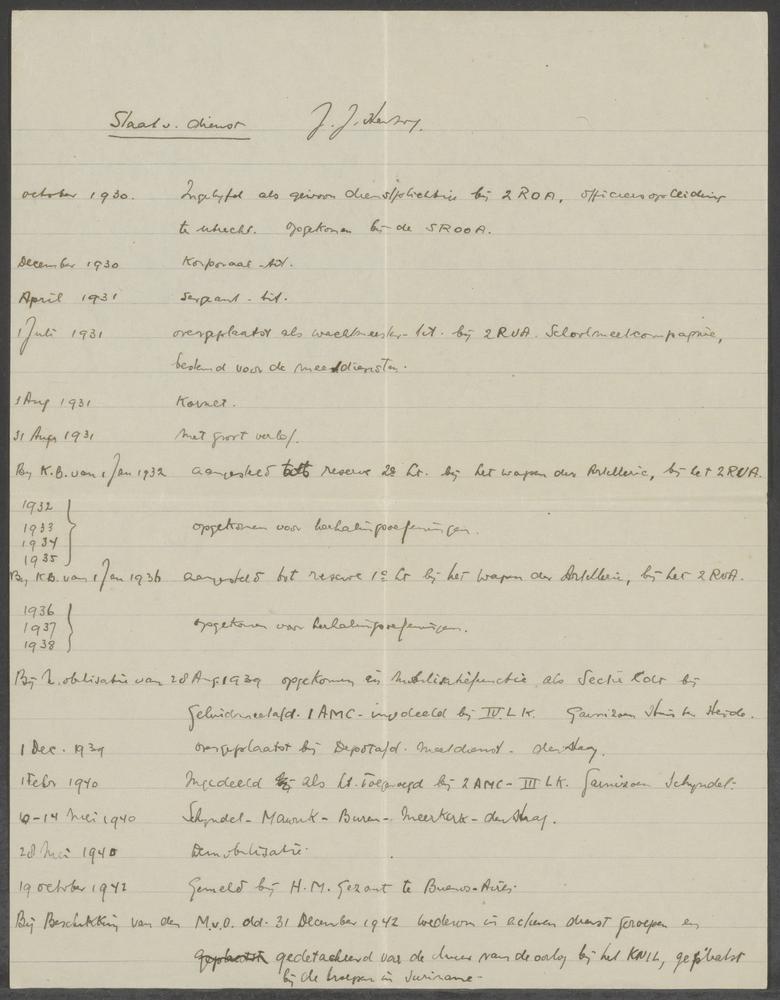 Staat v. dienst J. J.
october 1930. Ingelijfd als gewoon dienstplichtige bij 2 ROA, officiersopleiding
te Utrecht. Opgekomen bij de SROOA.
December 1930 Korporaal-tit.
April 1931 Sergeant-tit.
1 Juli 1931 overgeplaatst als wachtmeester-tit. bij 2 RVA. Schoolmeetcompagnie,
bestemd voor de meetdiensten.
1 Aug 1931 Kornet.
31 Aug 1931 Met groot verlof.
Bij K.B. van 1 Jan 1932 aangesteld tot reserve 2e Lt. bij het wapen der Artillerie, bij het 2 RVA.
1932
1933 opgekomen voor herhalingsoefeningen.
1934
1935
Bij K.B. van 1 Jan 1936 aangesteld tot reserve 1e Lt bij het wapen der Artillerie, bij het 2 RVA.
1936
1937 opgekomen voor herhalingsoefeningen.
1938
Bij Mobilisatie van 28 Aug. 1939 opgekomen in mobilisatiefunctie als Sectie Cdt bij
Geluidmeetafd. 1 AMC - ingedeeld bij IV L.K. Garnizoen Huis ter Heide.
1 Dec. 1939 overgeplaatst bij Depotafd. Meetdienst - den Haag.
1 Febr 1940 Ingedeeld als Lt. Toegevoegd bij 2 AMC - III LK. Garnizoen Schyndel.
10-14 Mei 1940 Schyndel - Maurik - Buren - Meerkerk - den Haag.
28 Mei 1940 Demobilisatie.
19 october 1942 Gemeld bij H.M. Gezant te Buenos-Aires.
Bij Beschikking van den M.v.O. dd. 31 December 1942 wederom in actieven dienst geroepen en
geplaatst gedetacheerd voor de duur van de oorlog bij het KNIL, geplaatst
bij de troepen in Suriname -